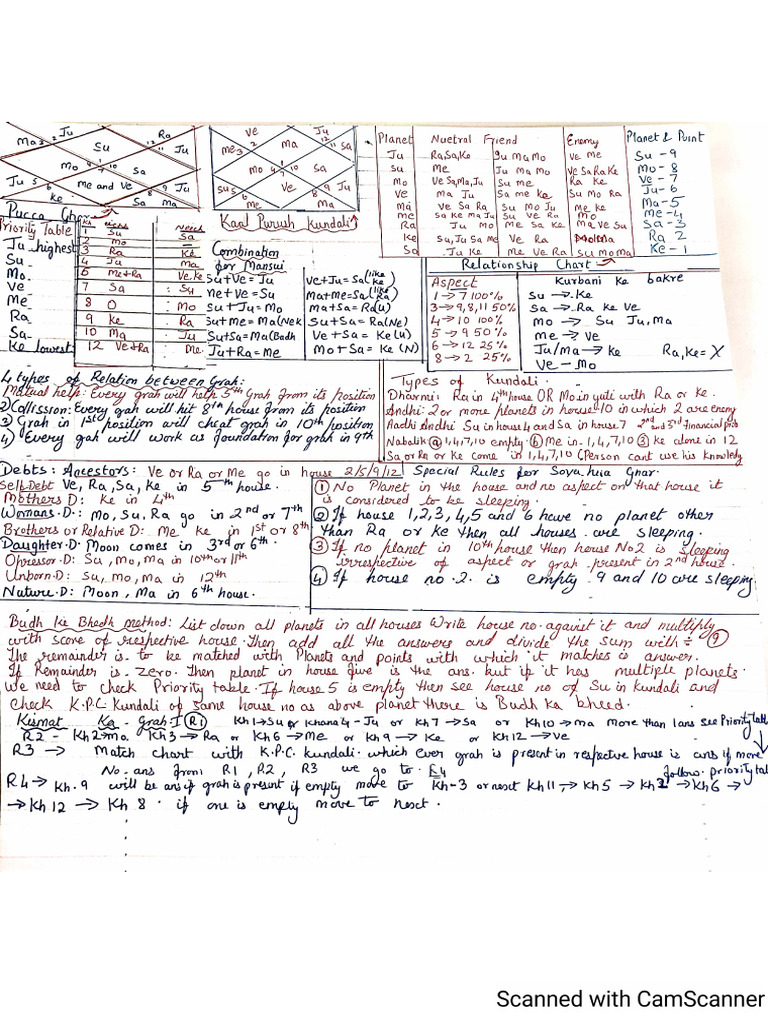 Ma 3 2 Ju Ra 12 11 Ju
Su
Mo 4 1 10 Sa
7
Ju 5 6 me and ve 9 Ju
ke 8 Sa Ma
Pucca Ghar
ve Ju
me 3 2 Ma 12 11 Sa
mo 4 1 10 Sa
7
su 5 6 Ve 8 9 Ju
me Ma
Kaal Purush Kundali
Planet Nuetral Friend Enemy
Ju Ra,Sa,Ke Su Ma Mo Ve Me
Su Me Ju Ma Mo Ve Sa Ra Ke
Mo Ve Sa,Ma,Ju Su me Ra Ke
Ve Ma Ju Sa me Ke Su Mo Ra
Ma Ve Sa Ra Su Mo Ju Me Ke
me Sa Ke Ma Ju Su Ve Ra Mo
Ra Ju Mo Me Sa Ke Ma Ve Su
Ke Su,Ju Sa Me Ve Ra Mo Ma
Sa Ju Ke Me Ve Ra Su Mo Ma
Relationship Chart
Planet & Point
Su - 9
Mo - 8
Ve - 7
Ju - 6
Ma - 5
Me - 4
Sa - 3
Ra 2
Ke - 1
Priority Table
Ju highest
Su -
Mo.
Ve
Me
Ra
Sa
Ke lowest
Kh Neech
1 Su Sa
2 Mo
3 Ra Ke
4 Ju Ma
6 Me+Ra Ve.Ke
7 Sa Su
8 O Mo
9 Ke Ra
10 Ma Ju
12 Ve+Ra Me
Combination for Mansui
Su+Ve = Ju
Me+Ve = Su
Su+Ju = Mo
Su+me = Ma(Nek
Su+Sa = Ma(Badh
Ju+Ra = Me
Ve+Ju = Sa (like Ke
Ma+me = Sa (like Ra)
Ma+Sa = Ra(U)
Su+Sa = Ra(Ne)
Ve+Sa = Ke(U)
Mo+Sa = Ke (N)
Aspect
1 → 7 100%
3 → 9,8,11 50%
4 → 10 100%
5 → 9 50%
6 → 12 25%
8 → 2 25%
Kurbani Ke bakre
Su → Ke
Sa → Ra Ke Ve
Mo → Su Ju,Ma
Me → Ve
Ju/Ma → Ke Ra,Ke = X
Ve - Mo
4 types of Relation between Grah:
Mutual help: Every grah will help 5th Grah from its position
2) Collission: Every grah will hit 8th house from its position
3) Grah in 1st position will cheat grah in 10th position
4) Every gah will work as foundation for grah in 9th
Types of Kundali.
Dharmi: Ra in 4th house OR Mo in yuti with Ra or Ke.
Andhi: 2 or more planets in house-10 in which 2 are enemy
Aadhi Andhi Su in house 4 and Sa in house 7 2nd and 3rd Financial prob
Nabalik ⓐ 1,4,7,10 empty. ⓑ Me in 1,4,7,10 ③ ke alone in 12
Sa or Ra or Ke come in 1,4,7,10 (Person cant use his knowledg
Debts: Ancestors: Ve or Ra or Me go in house 2/5/9/12
Self-Debt Ve, Ra, Sa, Ke in 5th house.
Mothers D: Ke in 4th
Womans.D: Mo, Su, Ra go in 2nd or 7th
Brothers or Relative D: Me Ke in 1st or 8th
Daughter.D Moon comes in 3rd or 6th.
Opressor.D: Su, Mo, Ma in 10th or 11th
Unborn.D: Su, mo, Ma in 12th
Nuture.D: Moon, Ma in 6th house.
Special Rules for Soya hua Ghar.
① No Planet in the house and no aspect on that house it
is considered to be sleeping.
② If house 1,2,3,4,5 and 6 have no planet other
than Ra or Ke then all houses are sleeping.
③ If no planet in 10th house then house No2 is sleeping
irrespective of aspect or grah present in 2nd house.
④ If house no.2. is empty 9 and 10 are sleeping.
Budh ki Bhedh method: List down all planets in all houses Write house no. against it and multiply
with score of respective house. Then add all the answers and divide the sum with ÷ ⑨
The remainder is to be matched with Planets and points with which it matches is answer.
If Remainder is Zero. Then planet in house five is the ans. but if it has multiple planets.
We need to check Priority table. If house 5 is empty then see house no of Su in Kundali and
check K.P.C Kundali of same house no as above planet there is Budh ka bheed.
Kismat Ka Grah: (R1) Kh 1→Su or khana 4 - Ju or Kh 7→Sa or Kh 10→Ma More than 1 ans see Priority table
R2 - Kh 2→Ma Kh3→Ra or Kh6→Me or Kh 9→Ke or Kh 12→Ve
R3 → Match chart with K.P.C. Kundali. which ever grah is present in respective house is ans if more
follow priority tab
No. ans from R1, R2, R3 we go to R4
R4 → Kh.9 will be ans if grah is present if empty move to Kh-3 or next Kh 11, → Kh 5 → Kh 2 → Kh 6 →
→ Kh 12 → Kh 8. if one is empty move to next.
Scanned with CamScanner